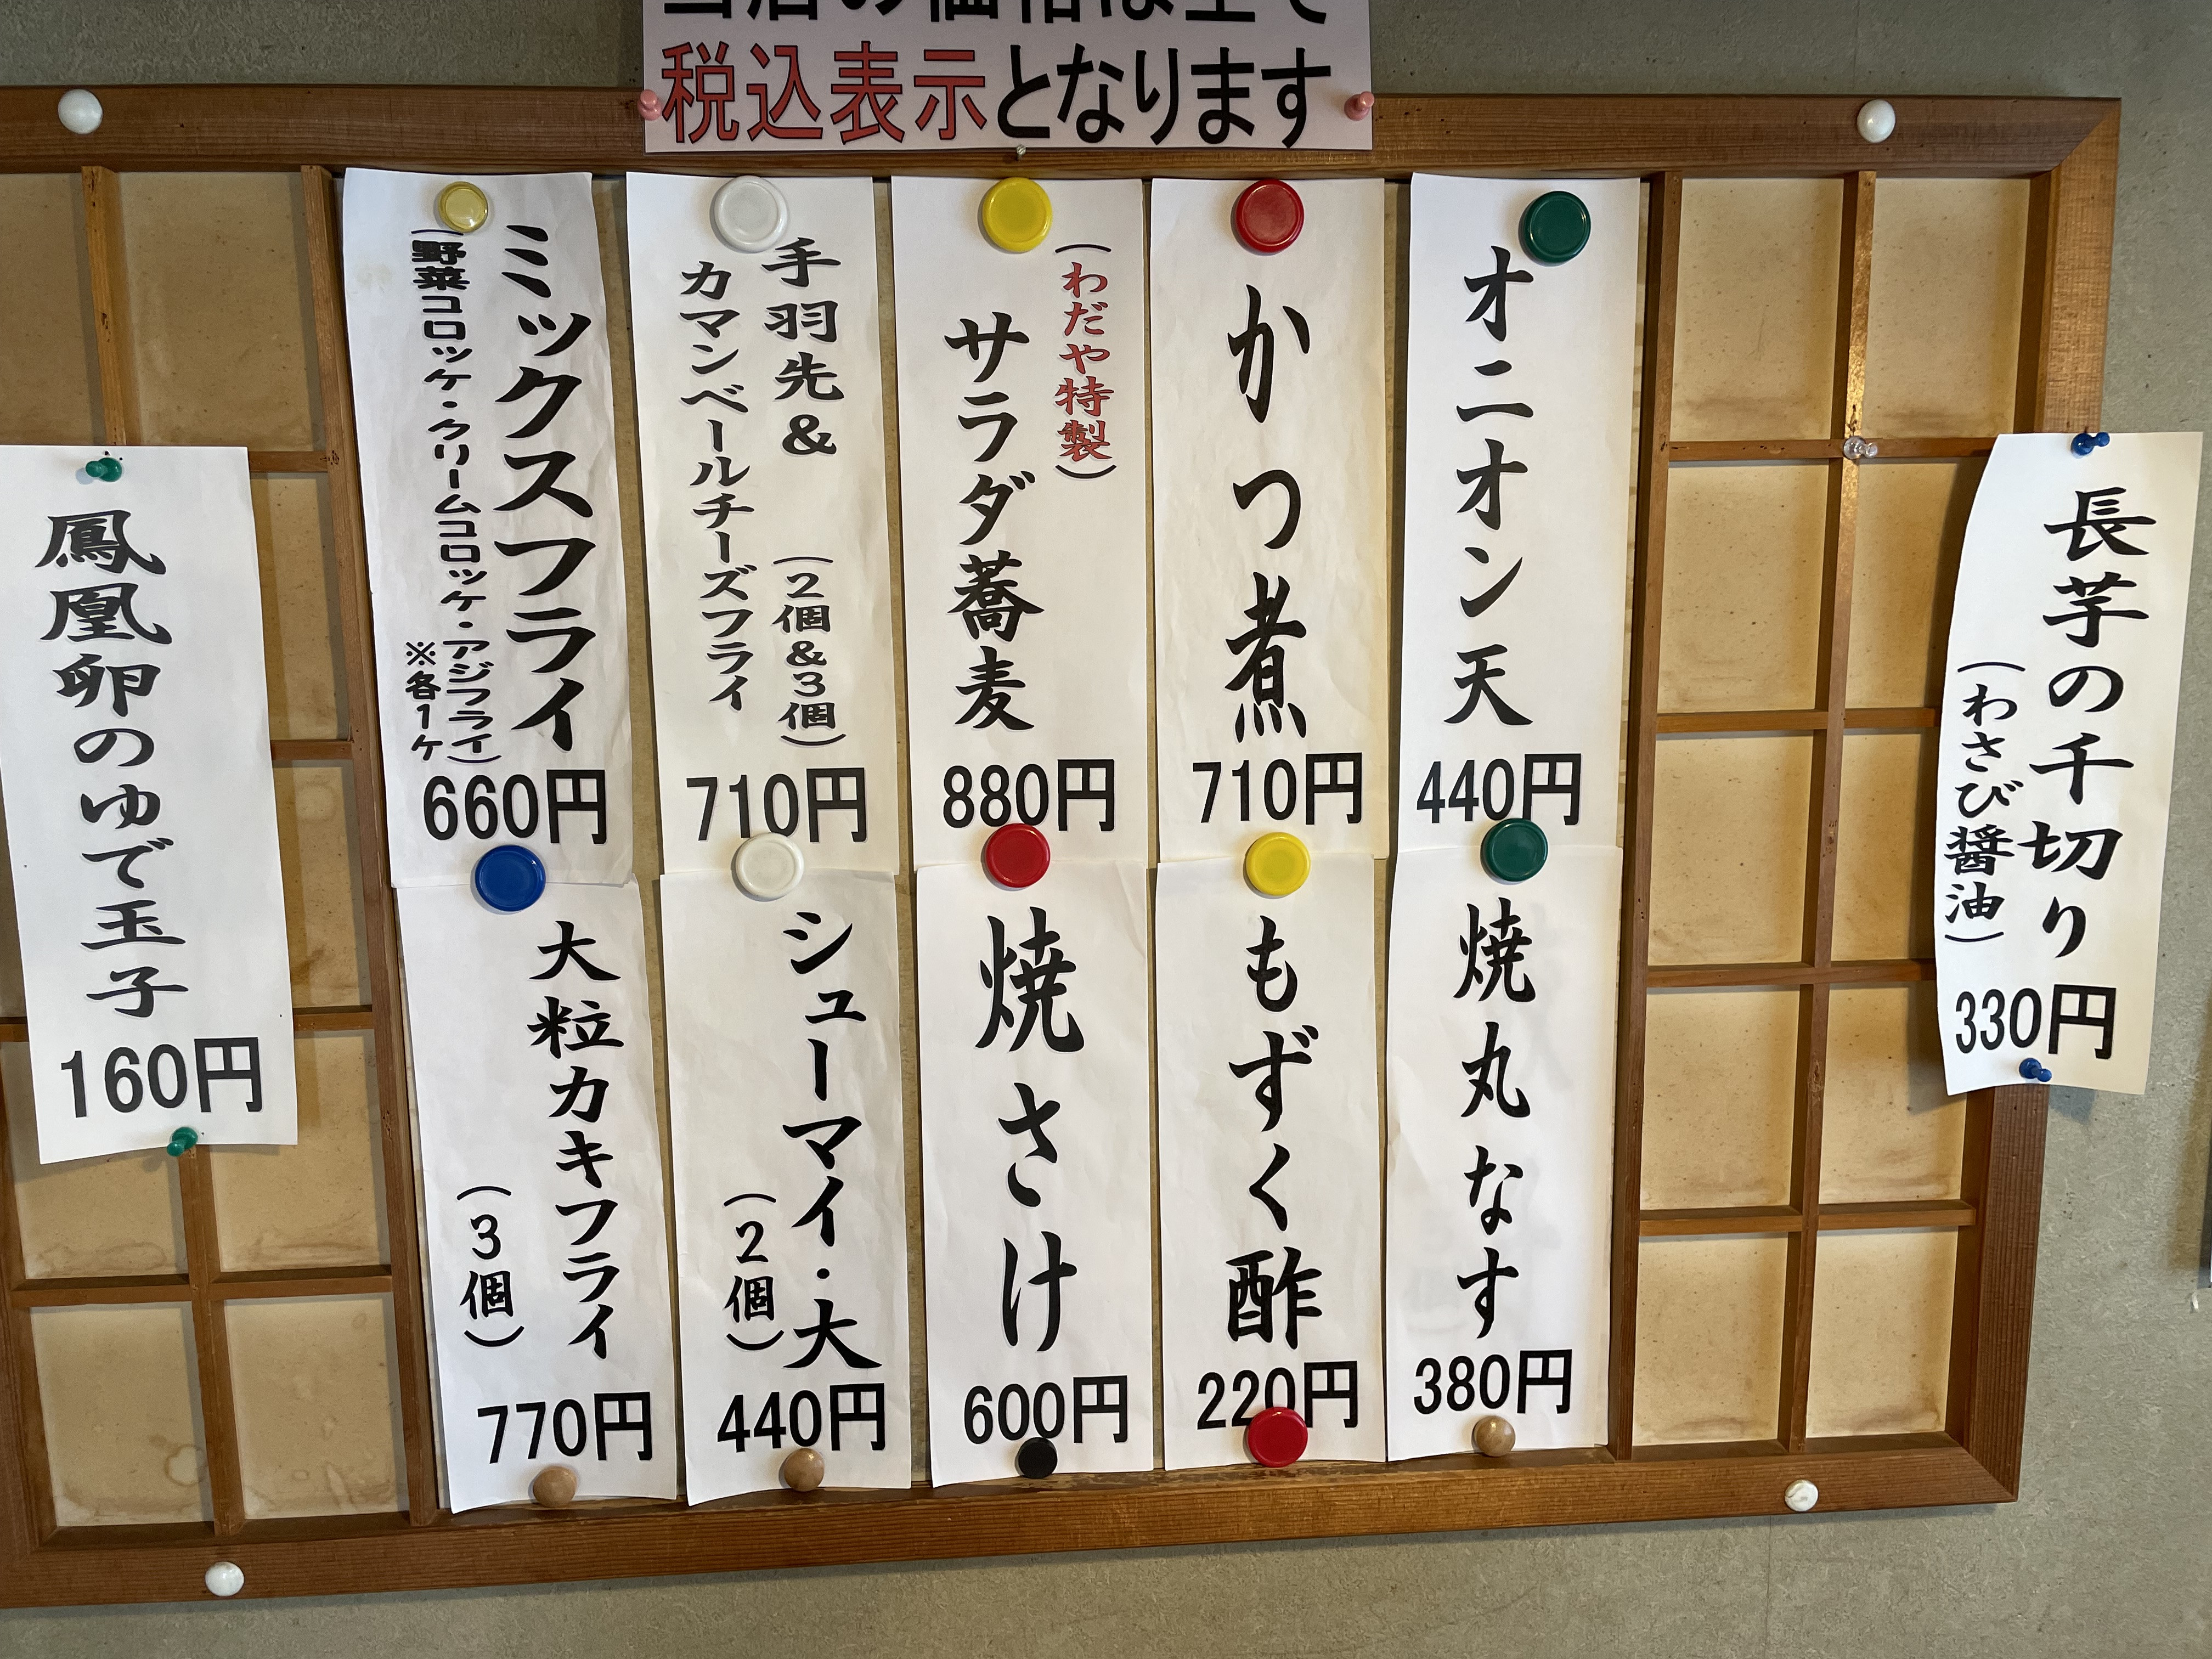 当店の価格は全て
税込表示となります
長芋の千切り
(わさび醤油)
330円
オニオン天
440円
かつ煮
710円
(わだや特製)
サラダ蕎麦
880円
手羽先& (2個&3個)
カマンベールチーズフライ
710円
ミックスフライ
(野菜コロッケ・クリームコロッケ・アジフライ)
※各1ケ
660円
焼丸なす
380円
もずく酢
220円
焼さけ
600円
シューマイ・大
(2個)
440円
大粒カキフライ
(3個)
770円
鳳凰卵のゆで玉子
160円